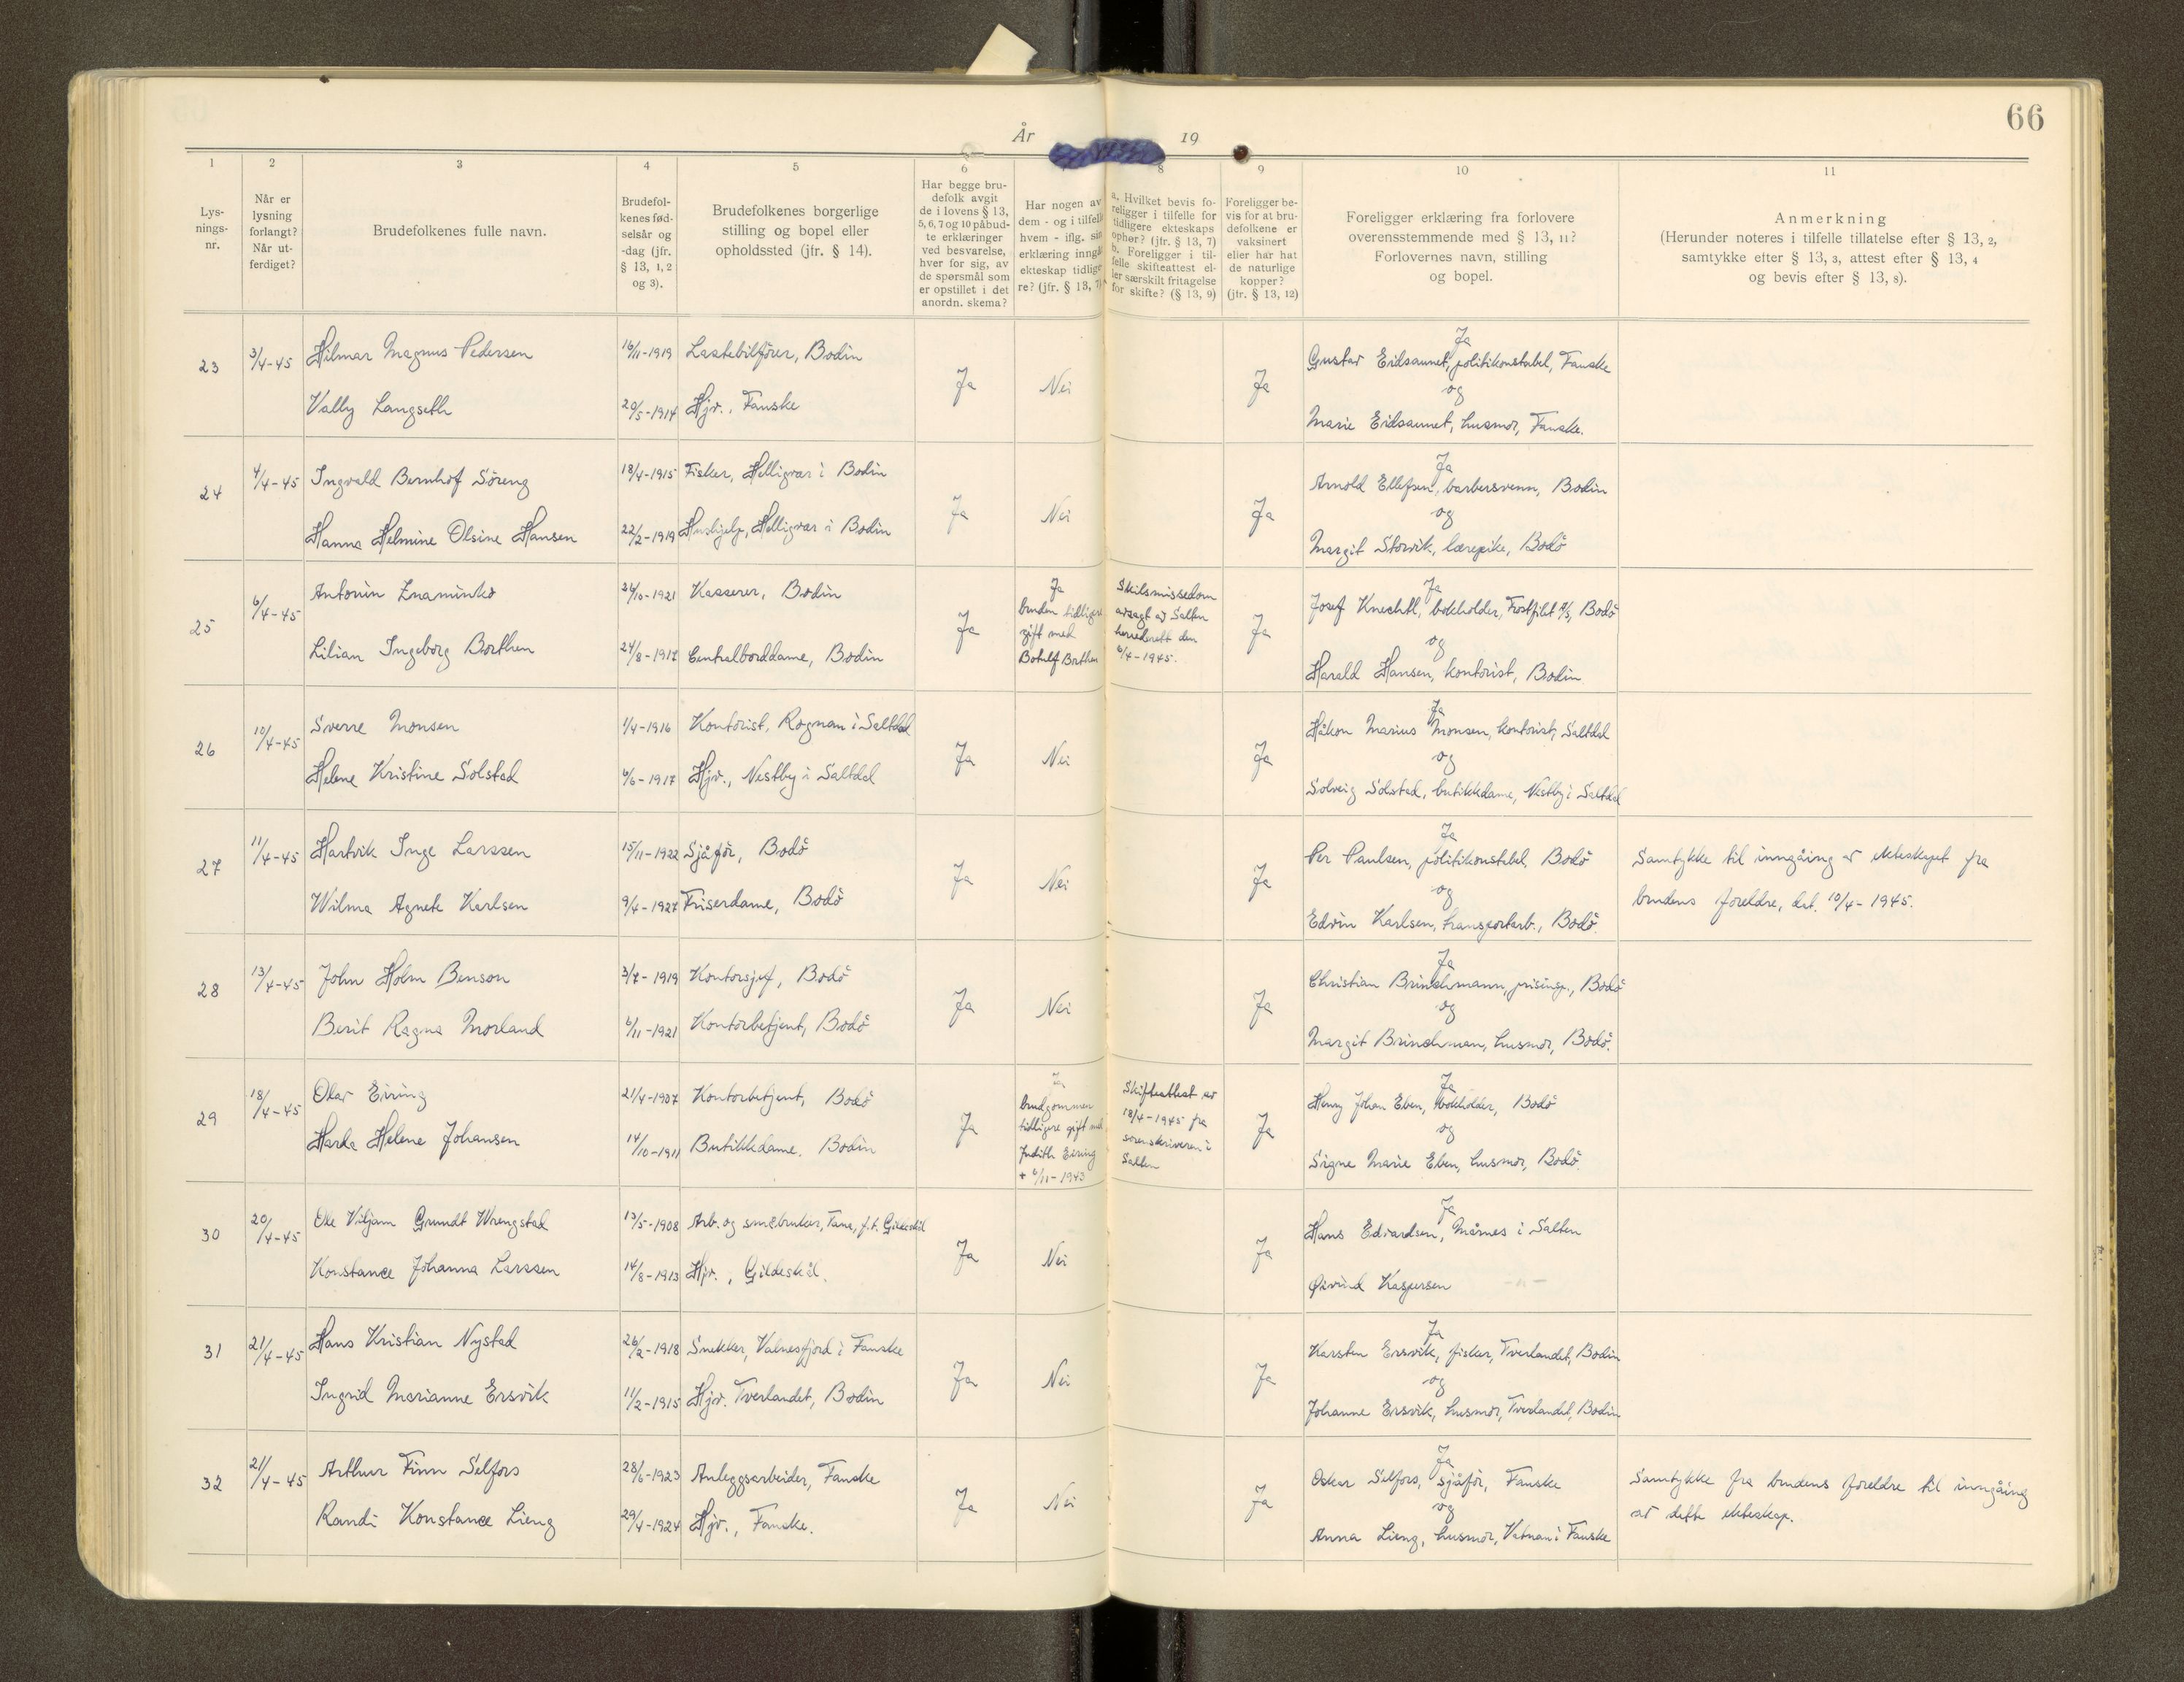 66
År 19
1 2 3 4 5 6 8 9 10 11
Lys-
nings-
nr.
Når er
lysning
forlangt?
Når ut-
ferdiget?
Brudefolkenes fulle navn.
Brudefol-
kenes fød-
selsår og
-dag (jfr.
§ 13, 1, 2
og 3).
Brudefolkenes borgerlige
stilling og bopel eller
opholdssted (jfr. § 14).
Har begge bru-
defolk avgit
de i lovens § 13,
5, 6, 7 og 10 påbud-
te erklæringer
ved besvarelse,
hver for sig, av
de spørsmål som
er opstillet i det
anordn. skema?
Har nogen av
dem - og i tilfelle
hvem - iflg. sin
erklæring inngå
ekteskap tidlige-
re? (jfr. § 13, 7)
a. Hvilket bevis fo-
religger i tilfelle for
tidligere ekteskaps
ophør? (jfr. § 13, 7)
b. Foreligger i til-
felle skifteattest el-
ler særskilt fritagelse
for skifte? (§ 13, 9)
Foreligger be-
vis for at bru-
defolkene er
vaksinert
eller har hat
de naturlige
kopper?
(jfr. § 13, 12)
Foreligger erklæring fra forlovere
overensstemmende med § 13, 11?
Forlovernes navn, stilling
og bopel.
Anmerkning
(Herunder noteres i tilfelle tillatelse efter § 13, 2,
samtykke efter § 13, 3, attest efter § 13, 4
og bevis efter § 13, 8).
23
3/4-45
Hilmar Magnus Pedersen
Vally Langseth
16/11-1919
20/5-1914
Lastebilfører, Bodin
Hjv., Fauske
Ja
Nei
Ja
Ja
Gustav Eidsaunet, politikonstabel, Fauske
og
Marie Eidsaunet, husmor, Fauske.
24
4/4-45
Ingvald Bernhof Söreng
Hanna Helmine Olsine Hansen
18/4-1915
22/2-1919
Fisker, Helligvær i Bodin
Hushjelp, Helligvær i Bodin
Ja
Nei
Ja
Ja
Arnold Ellefsen, barbersvenn, Bodin
og
Margit Storvik, lærepike, Bodö
25
6/4-45
Antonin Znaminko
Lilian Ingeborg Borthen
26/10-1921
24/8-1917
Kasserer, Bodin
Centralborddame, Bodin
Ja
Ja
bruden tidligere
gift med
Botulf Borthen
Skilsmissedom
avsagt av Salten
herredsrett den
6/4-1945.
Ja
Ja
Josef Knechtl, bokholder, Frostfilet A/S, Bodö
og
Harald Hansen, kontorist, Bodin
26
10/4-45
Sverre Monsen
Helene Kristine Solstad
1/4-1916
6/6-1917
Kontorist, Rognan i Saltdal
Hjv., Nestby i Saltdal
Ja
Nei
Ja
Ja
Håkon Marius Monsen, kontorist, Saltdal
og
Solveig Solstad, butikkdame, Nestby i Saltdal
27
11/4-45
Hartvik Inge Larssen
Wilma Agnete Karlsen
15/11-1922
9/4-1927
Sjåför, Bodö
Friserdame, Bodö
Ja
Nei
Ja
Ja
Per Paulsen, politikonstabel, Bodö
og
Edvin Karlsen, transportarb., Bodö.
Samtykke til inngåing av ekteskapet fra
brudens foreldre, dat. 10/4-1945.
28
13/4-45
John Holm Benson
Berit Ragna Morland
3/7-1919
6/11-1921
Kontorsjef, Bodö
Kontorbetjent, Bodö
Ja
Nei
Ja
Ja
Christian Brinchmann, prisinsp., Bodö
og
Margit Brinchman, husmor, Bodö.
29
18/4-45
Olav Eiring
Harda Helene Johansen
21/4-1907
14/10-1911
Kontorbetjent, Bodö
Butikkdame. Bodin
Ja
Ja
brudgommen
tidligere gift med
Judith Eiring
+ 6/11-1943
Skifteattest av
18/4-1945 fra
sorenskriveren i
Salten
Ja
Ja
Henry Johan Eben, bokholder, Bodö
og
Signe Marie Eben, husmor, Bodö.
30
20/4-45
Ole Viljam Grundt Wrengstad
Konstance Johanna Larssen
13/5-1908
14/8-1913
Arb. og småbruker, Tana, f.t. Gildeskål
Hjv., Gildeskål.
Ja
Nei
Ja
Ja
Hans Edvardsen, Mårnes i Salten
Øivind Kaspersen - " -
31
21/4-45
Hans Kristian Nystad
Ingrid Marianne Ersvik
26/2-1918
11/2-1915
Snekker, Valnesfjord i Fauske
Hjv. Tverlandet, Bodin
Ja
Nei
Ja
Ja
Karsten Ersvik, fisker, Tverlandet, Bodin
og
Johanne Ersvik, husmor, Tverlandet, Bodin
32
21/4-45
Arthur Finn Selfors
Randi Konstance Lieng
28/6-1923
29/4-1924
Anleggsarbeider, Fauske
Hjv., Fauske.
Ja
Nei
Ja
Ja
Oskar Selfors, sjåför, Fauske
og
Anna Lieng, husmor, Vatnan i Fauske
Samtykke fra brudens foreldre til inngåing
av dette ekteskap.